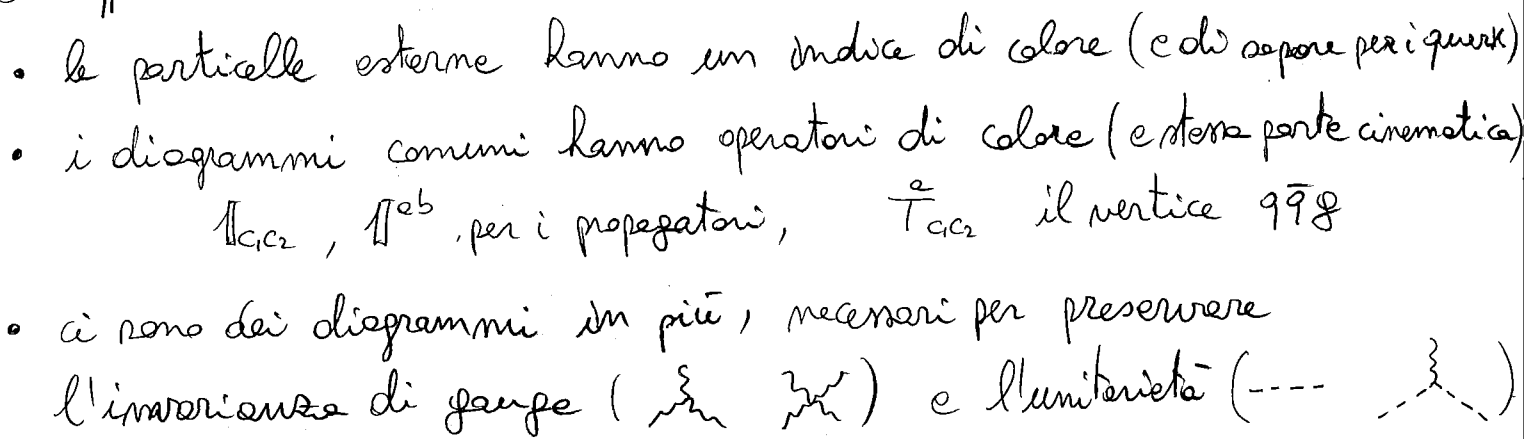 • le particelle esterne hanno un indice di colore (e di sapore per i quark)
• i diagrammi comuni hanno operatori di colore (e stessa parte cinematica)
𝟙c₁c₂ , 𝟙ᵃᵇ per i propagatori, Tᵃc₁c₂ il vertice qq̄g
• ci sono dei diagrammi in più, necessari per preservare
l'invarianza di gauge ( ) e l'unitarietà ( )